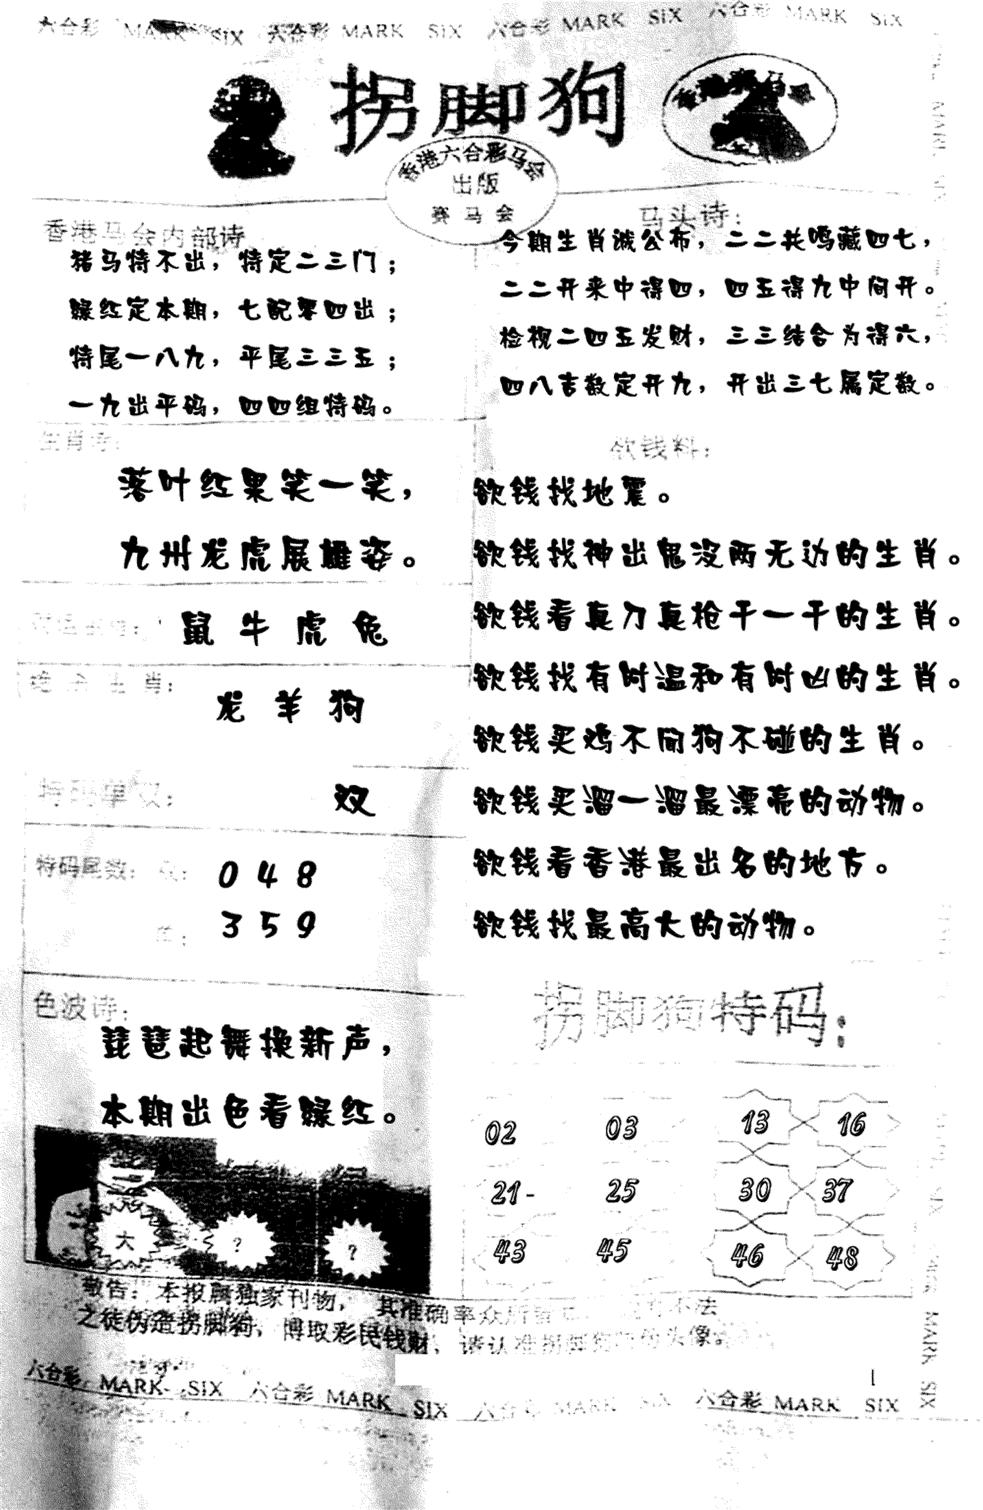 六合彩 MARK SIX 六合彩 MARK SIX 六合彩 MARK SIX 六合彩 MARK SIX
拐脚狗
香港赛马会
香港六合彩马会
出版
赛马会
香港马会内部诗
猪马特不出，特定二三门；
绿红定本期，七配零四出；
特尾一八九，平尾三三五；
一九出平码，四四组特码。
马头诗：
今期生肖诚公布，二二共鸣藏四七，
二二开来中得四，四五得九中间开。
检视二四五发财，三三结合为得六，
四八吉数定开九，开出三七属定数。
生肖诗：
落叶红果笑一笑，
九州龙虎展雄姿。
鼠牛虎兔
绝杀生肖：
龙羊狗
特码单双：
双
特码尾数：双：
0 4 8
单：
3 5 9
欲钱料：
欲钱找地震。
欲钱找神出鬼没两无边的生肖。
欲钱看真刀真枪干一干的生肖。
欲钱找有时温和有时凶的生肖。
欲钱买鸡不闻狗不碰的生肖。
欲钱买溜一溜最漂亮的动物。
欲钱看香港最出名的地方。
欲钱找最高大的动物。
色波诗：
琵琶起舞换新声，
本期出色看绿红。
大 ？ ？
拐脚狗特码：
02 03 13 16
21- 25 30 37
43 45 46 48
敬告：本报属独家刊物，其准确率众所 不法
之徒伪造拐脚狗，博取彩民钱财，请认准拐脚狗 头像
1
六合彩 MARK SIX 六合彩 MARK SIX 六合彩 MARK SIX 六合彩 MARK SIX
MARK SIX
MARK SIX